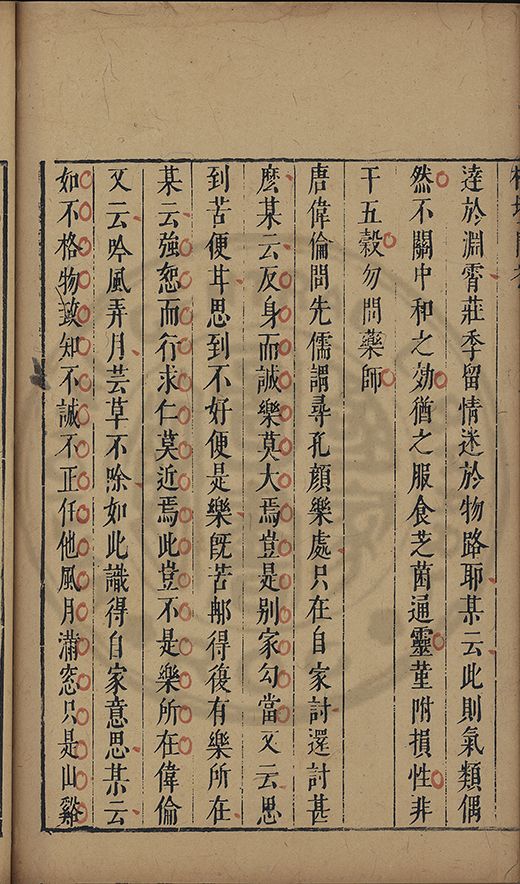 逹於淵霄莊季留情迷於物路耶某云此則氣類偶
然不關中和之効猶之服食芝菌通靈堇附損性非
干五穀勿問藥師
唐偉倫問先儒謂尋孔顔樂處只在自家討還討甚
麽某云反身而誠樂莫大焉豈是别家勾當又云思
到苦便甘思到不好便是樂既苦郍得復有樂所在
某云強恕而行求仁莫近焉此豈不是樂所在偉倫
又云吟風弄月芸草不除如此識得自家意思某云
如不格物致知不誠不正任他風月滿窓只是山谿